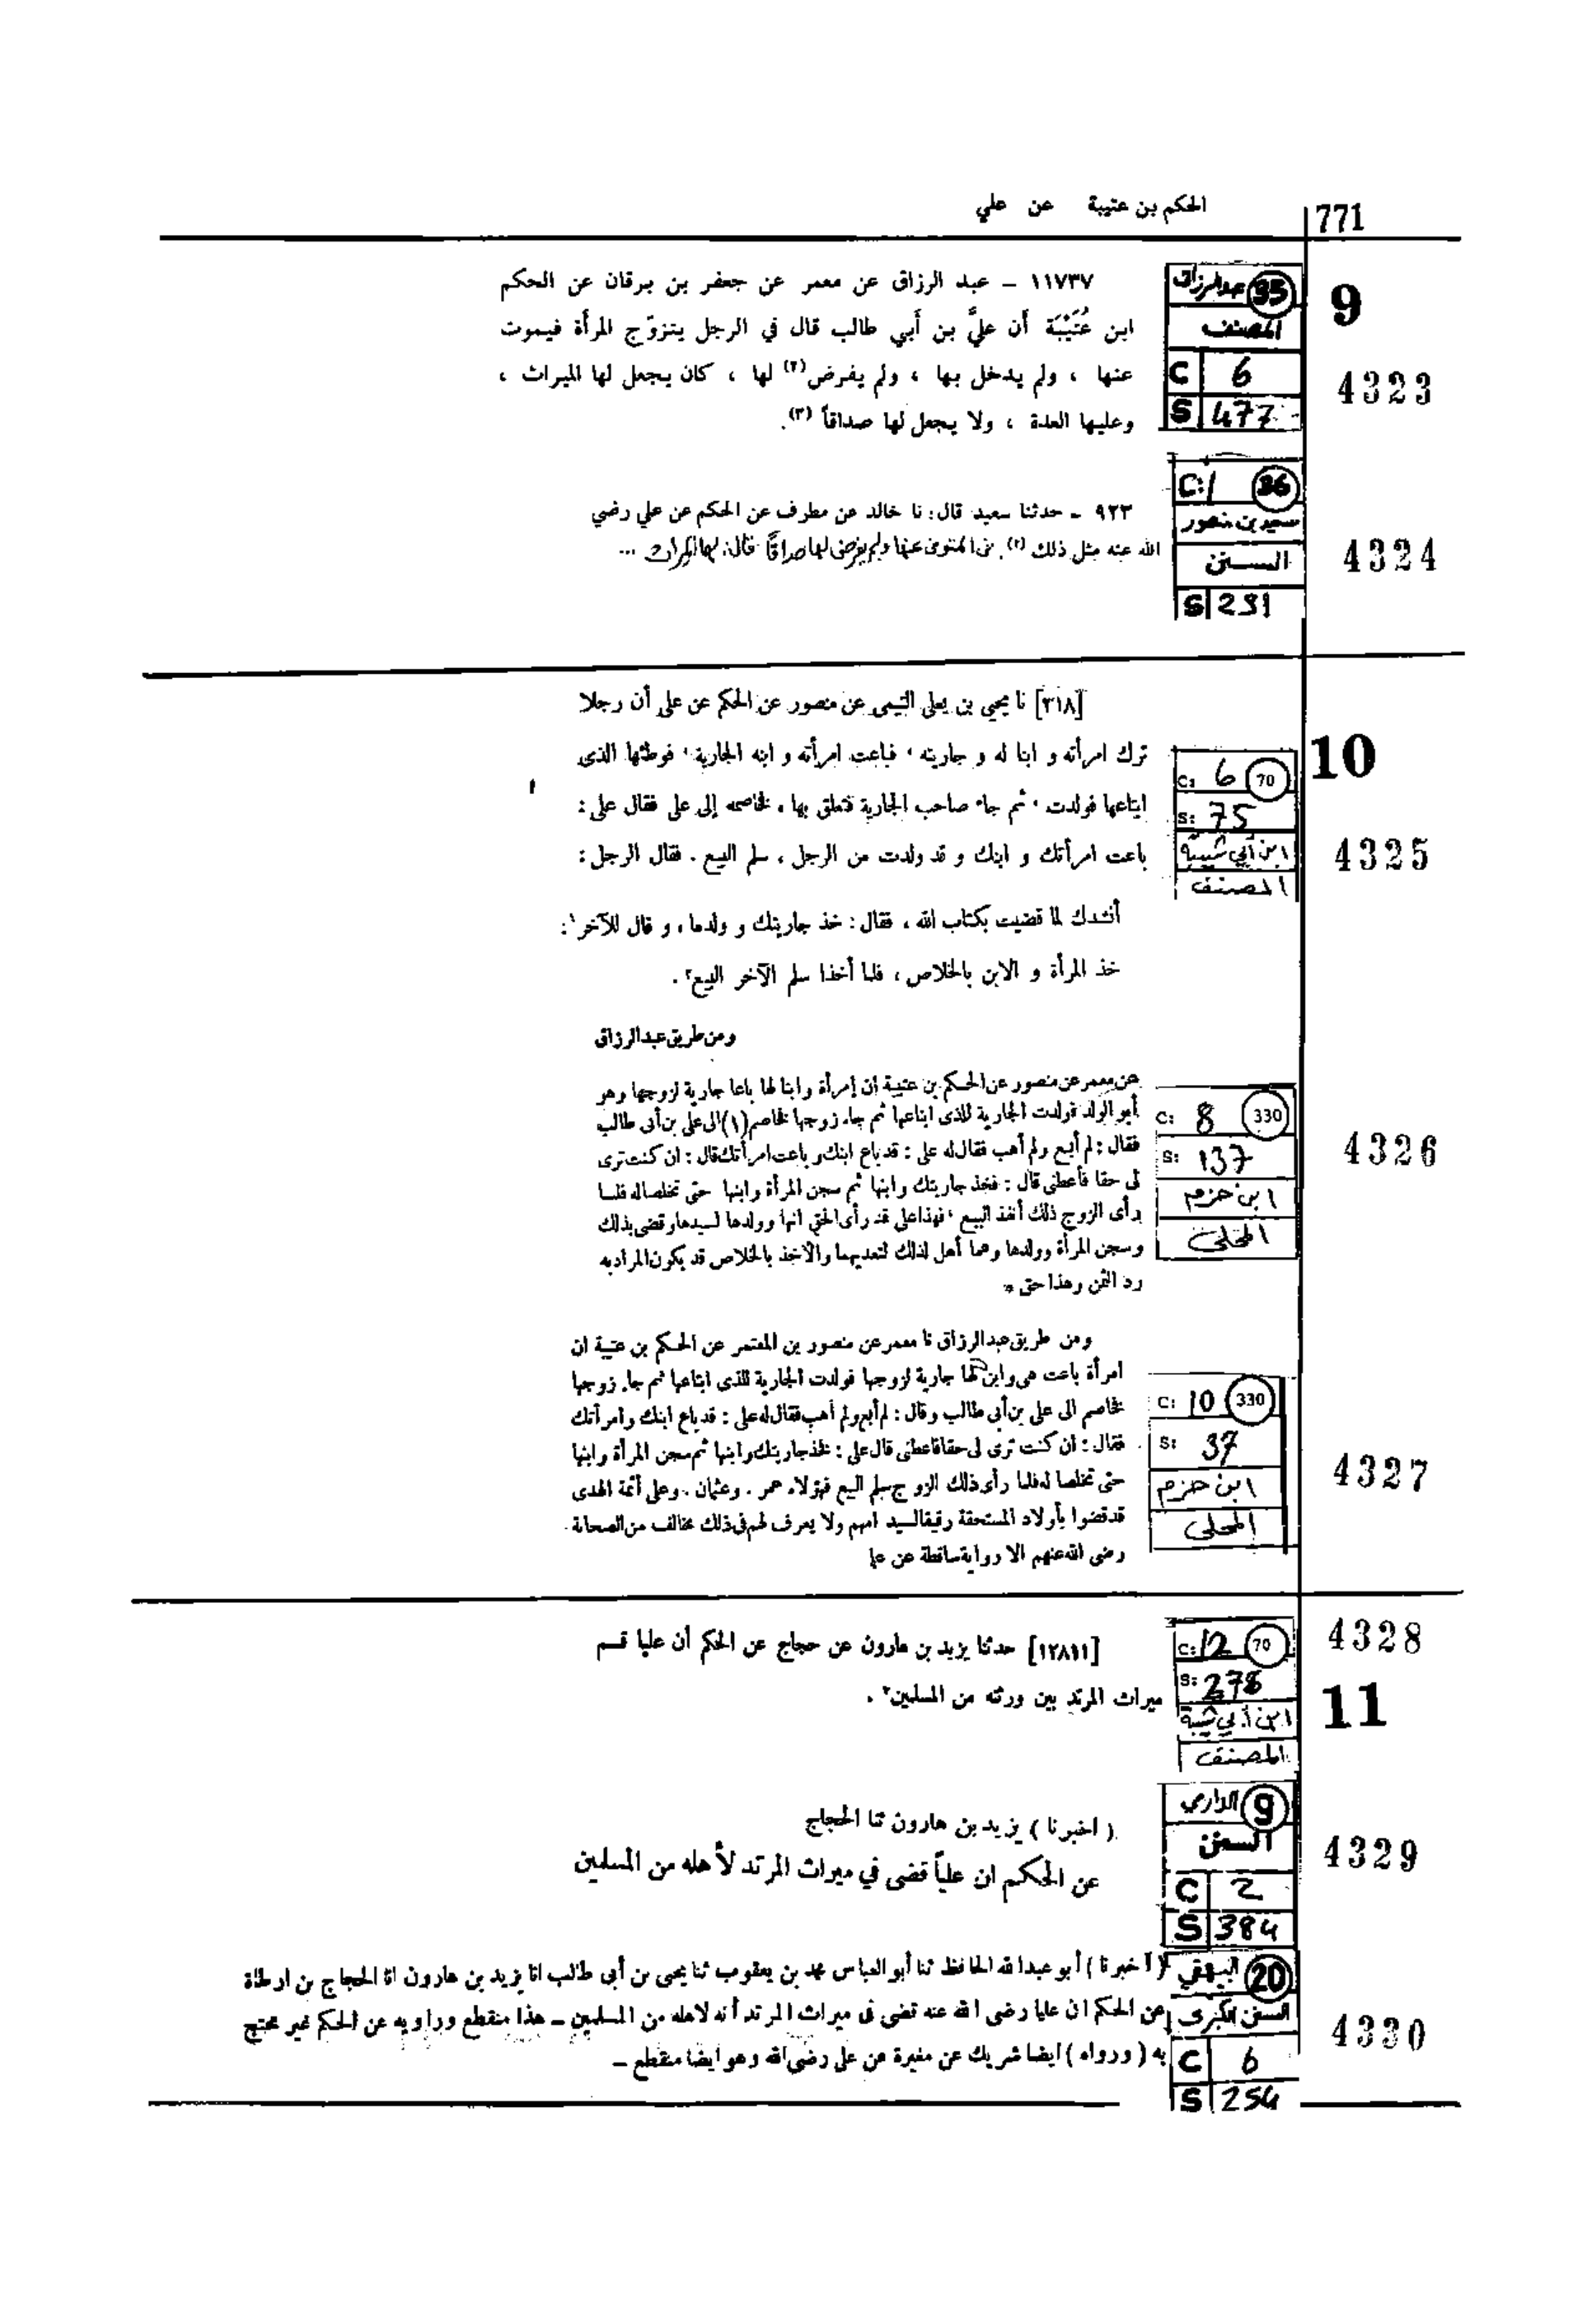 الحكم بن عتيبة عن علي
771
9
عبدالرزاق 35
المصنف
C 6
S 477
4323
١١٧٣٧ – عبد الرزاق عن معمر عن جعفر بن برقان عن الحكم
ابن عُتَيْبَة أن عليَّ بن أبي طالب قال في الرجل يتزوّج المرأة فيموت
عنها ، ولم يدخل بها ، ولم يفرض(٢) لها ، كان يجعل لها الميراث ،
وعليها العدة ، ولا يجعل لها صداقاً (٣).
C:1 36
سعيد بن منصور
السنن
S 231
4324
٩٢٣ - حدثنا سعيد قال: نا خالد عن مطرف عن الحكم عن علي رضي
الله عنه مثل ذلك (٢). في المتوفى عنها ولم يفرض لها صداقاً قال: لها الميراث ...
10
C: 6 70
S: 75
ابن أبي شيبة
المصنف
4325
[٣١٨] نا يحيى بن يعلى التيمى عن منصور عن الحكم عن على أن رجلا
ترك امرأته و ابنا له و جاريته ، فباعت امرأته و ابنه الجارية ، فوطئها الذى
ابتاعها فولدت ، ثم جاء صاحب الجارية فتعلق بها ، فخاصمه إلى على فقال على :
باعت امرأتك و ابنك و قد ولدت من الرجل ، سلم البيع . فقال الرجل :
أنشدك لما قضيت بكتاب الله ، فقال : خذ جاريتك و ولدها ، و قال للآخر١ :
خذ المرأة و الابن بالخلاص ، فلما أخذا سلم الآخر البيع٢ .
ومن طريق عبد الرزاق
C: 8 330
S: 137
ابن حزم
المحلى
4326
عن معمر عن منصور عن الحكم بن عتيبة ان إمرأة وابنا لها باعا جارية لزوجها وهو
أبو الولد فولدت الجارية للذى ابتاعها ثم جاء زوجها فخاصم (١) الى على بن أبى طالب
فقال : لم أبع ولم أهب فقال له على : قد باع ابنك وباعت امرأتك قال : ان كنت ترى
لى حقا فأعطنى قال : فخذ جاريتك وابنها ثم سجن المرأة وابنها حتى تخلصا له فلما
رأى الزوج ذلك أنفذ البيع ، فهذا على قد رأى الحق انها وولدها لسيدها وقضى بذلك
وسجن المرأة وولدها وهما أهل لذلك لتعديهما والأخذ بالخلاص قد يكون المراد به
رد الثمن وهذا حق *
C: 10 330
S: 37
ابن حزم
المحلى
4327
ومن طريق عبد الرزاق نا معمر عن منصور بن المعتمر عن الحكم بن عتيبة ان
امرأة باعت هى وابن لها جارية لزوجها فولدت الجارية للذى ابتاعها ثم جاء زوجها
فخاصم الى على بن أبى طالب وقال : لم أبع ولم أهب فقال له على : قد باع ابنك وامرأتك
فقال : ان كنت ترى لى حقا فاعطنى قال على : فخذ جاريتك وابنها ثم سجن المرأة وابنها
حتى تخلصا له فلما رأى ذلك الزوج سلم البيع فهؤلاء عمر . وعثمان . وعلى أئمة الهدى
قد قضوا بأولاد المستحقة رقيقا لسيد امهم ولا يعرف لهم فى ذلك مخالف من الصحابة
رضى الله عنهم الا رواية ساقطة عن على
4328
C: 12 70
S: 278
ابن أبي شيبة
المصنف
11
[١٢٨١١] حدثنا يزيد بن هارون عن حجاج عن الحكم أن عليا قسم
ميراث المرتد بين ورثته من المسلمين٢ .
الدارمي 9
السنن
C 2
S 384
4329
( اخبرنا ) يزيد بن هارون ثنا الحجاج
عن الحكم ان علياً قضى في ميراث المرتد لأهله من المسلمين
البيهقي 20
السنن الكبرى
C 6
S 254
4330
( أخبرنا ) أبو عبد الله الحافظ ثنا أبو العباس محمد بن يعقوب ثنا يحيى بن أبى طالب انا يزيد بن هارون انا الحجاج بن ارطاة
عن الحكم ان عليا رضى الله عنه قضى فى ميراث المرتد أنه لاهله من المسلمين – هذا منقطع وراويه عن الحكم غير محتج
به ( ورواه ) ايضا شريك عن مغيرة عن على رضى الله وهو ايضا منقطع –